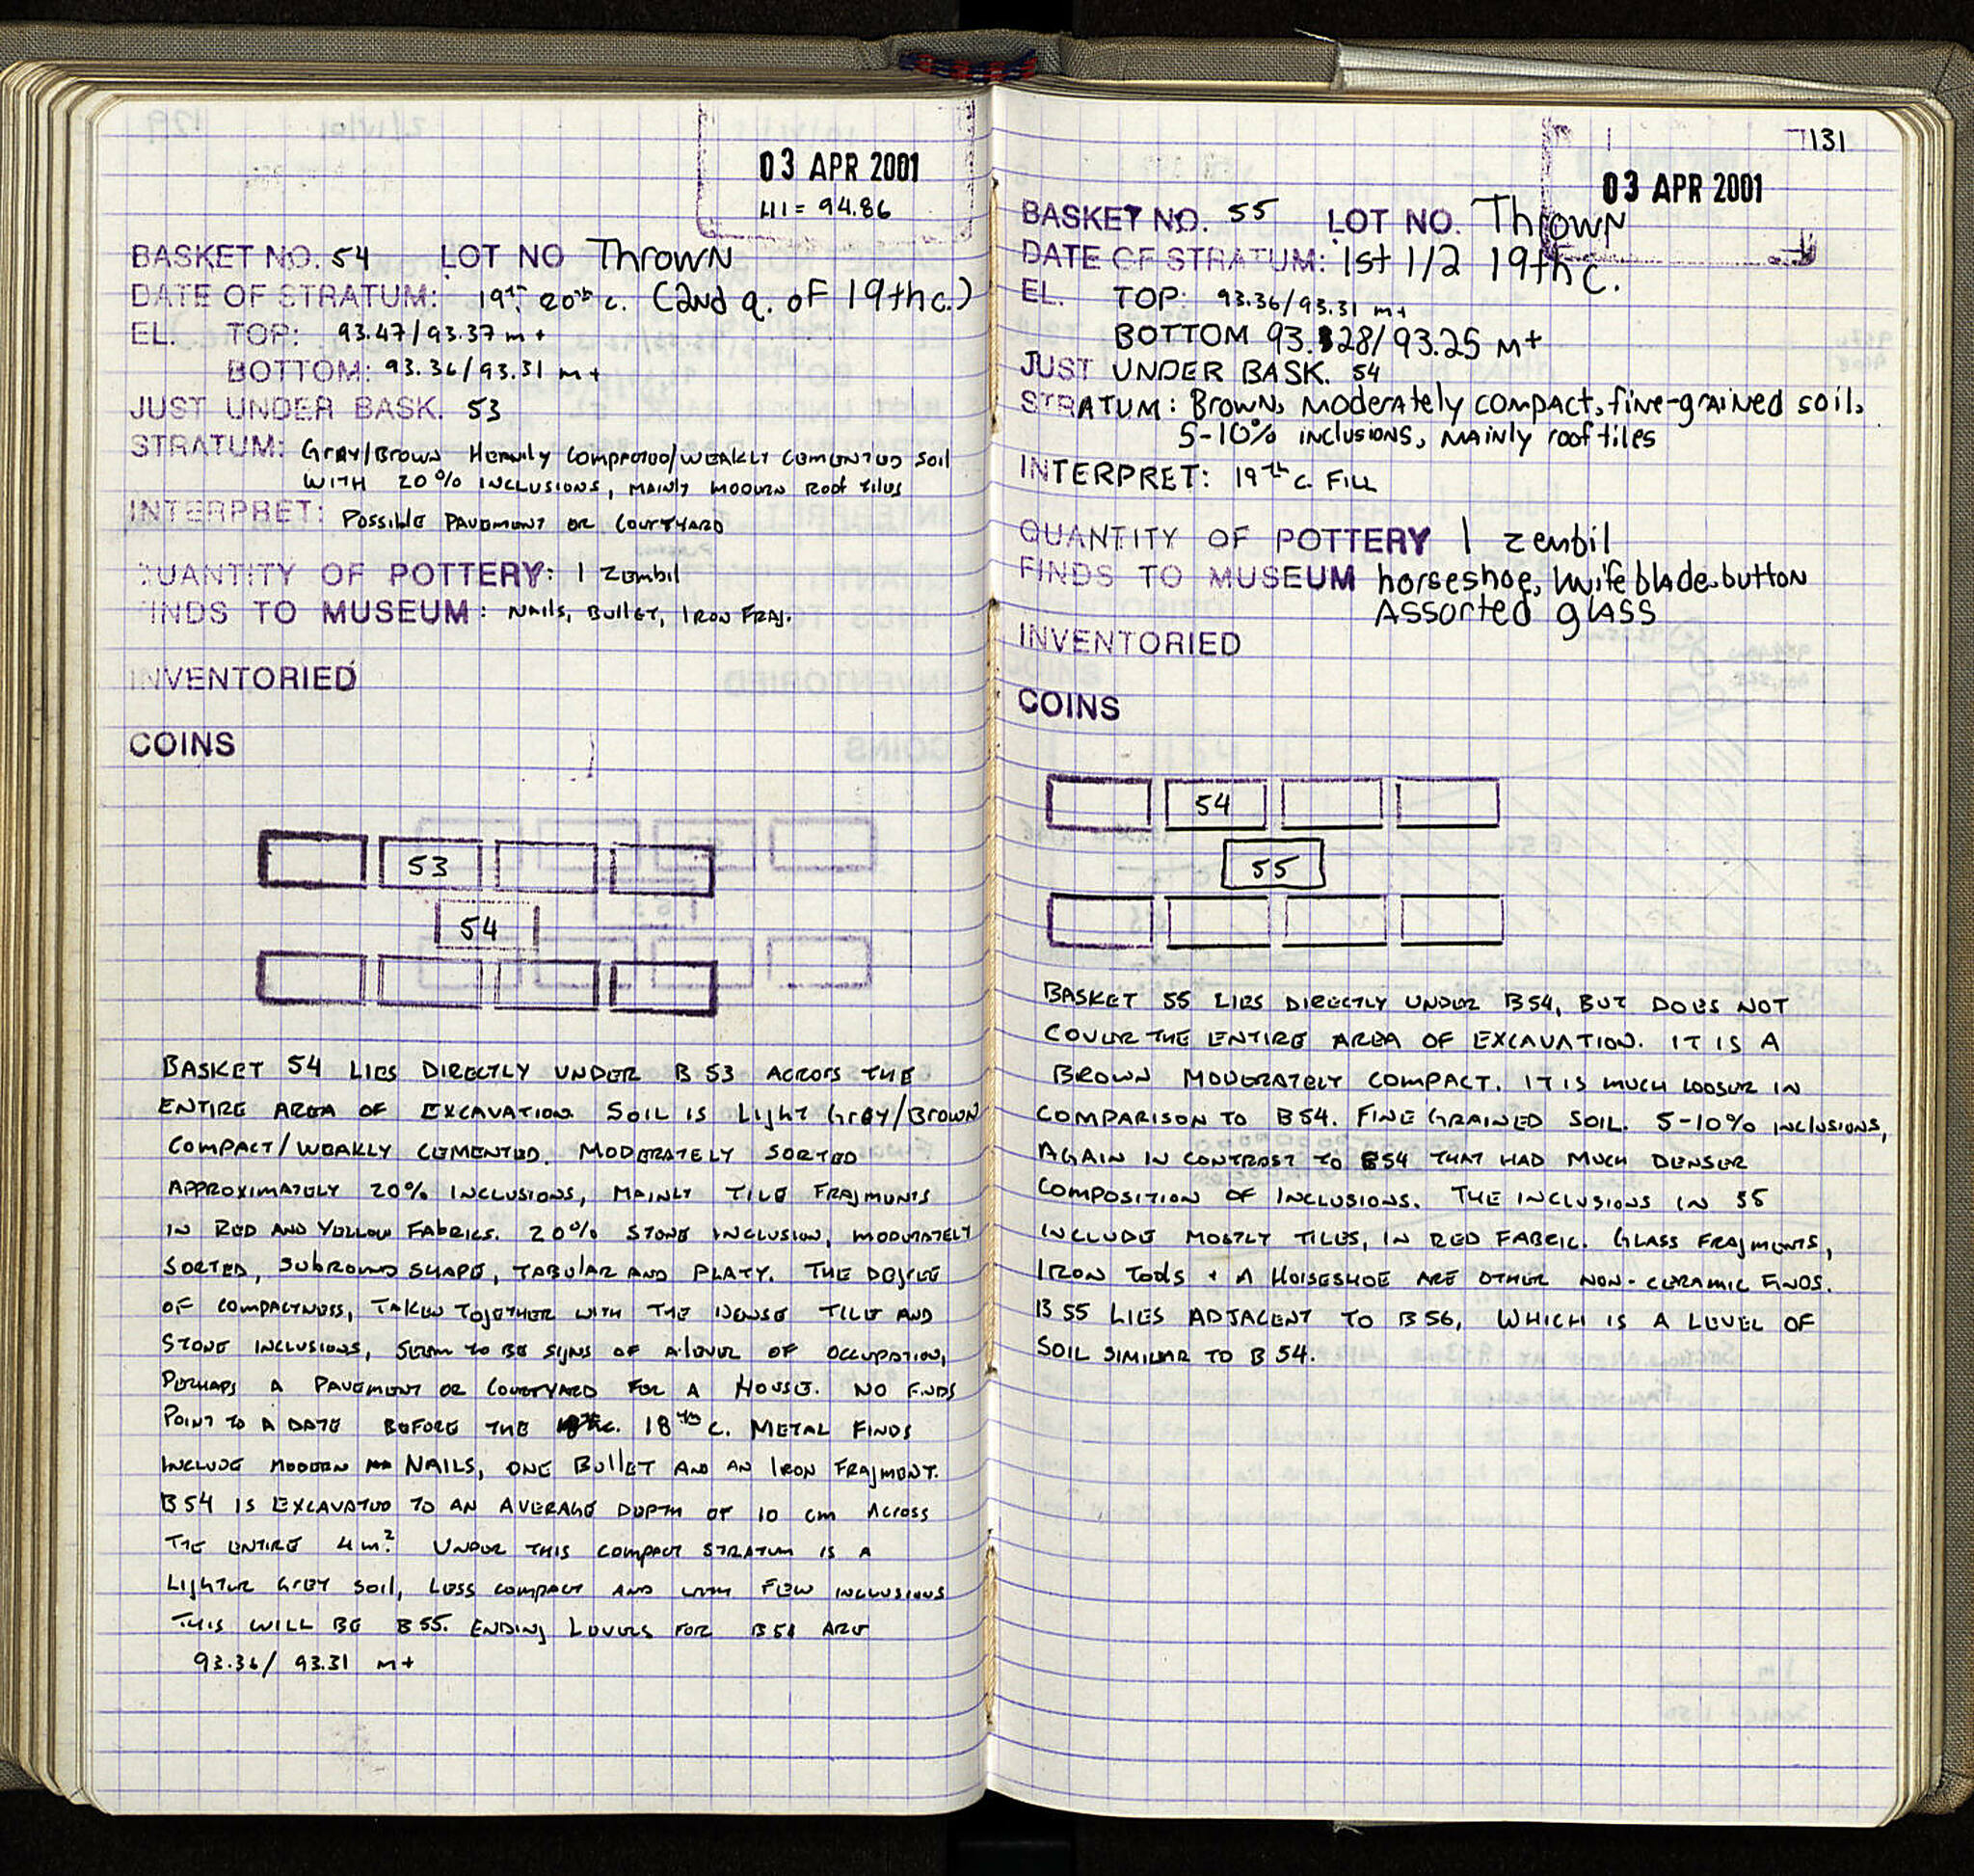 03 APR 2001
HI = 94.86
BASKET NO. 54 LOT NO Thrown
DATE OF STRATUM: 19th 20th c. (2nd q. of 19th c.)
EL. TOP: 93.47/93.37 m+
BOTTOM: 93.36/93.31 m+
JUST UNDER BASK. 53
STRATUM: Gray/Brown Heavily compacted/weakly cemented soil
with 20% inclusions, mainly modern roof tiles
INTERPRET: Possible Pavement or Courtyard
QUANTITY OF POTTERY: 1 zembil
FINDS TO MUSEUM: Nails, Bullet, Iron Frag.
INVENTORIED
COINS
53
54
BASKET 54 LIES DIRECTLY UNDER B53 ACROSS THE
ENTIRE AREA OF EXCAVATION. SOIL IS Light Gray/Brown
COMPACT/WEAKLY CEMENTED. MODERATELY SORTED
APPROXIMATELY 20% INCLUSIONS, MAINLY TILE FRAGMENTS
IN RED AND YELLOW FABRICS. 20% STONE INCLUSION, MODERATELY
SORTED, SUBROUND SHAPE, TABULAR AND PLATY. THE DEGREE
OF COMPACTNESS, TAKEN TOGETHER WITH THE DENSE TILE AND
STONE INCLUSIONS, SEEM TO BE SIGNS OF A LEVEL OF OCCUPATION,
PERHAPS A PAVEMENT OR COURTYARD FOR A HOUSE. NO FINDS
POINT TO A DATE BEFORE THE 18th C. METAL FINDS
INCLUDE MODERN NAILS, ONE BULLET AND AN IRON FRAGMENT.
B54 IS EXCAVATED TO AN AVERAGE DEPTH OF 10 cm ACROSS
THE ENTIRE 4m². UNDER THIS COMPACT STRATUM IS A
LIGHTER GREY SOIL, LESS COMPACT AND WITH FEW INCLUSIONS
THIS WILL BE B55. ENDING LEVELS FOR B54 ARE
93.36/ 93.31 m+
131
03 APR 2001
BASKET NO. 55 LOT NO. Thrown
DATE OF STRATUM: 1st 1/2 19th c.
EL. TOP: 93.36/93.31 m+
BOTTOM 93.28/93.25 m+
JUST UNDER BASK. 54
STRATUM: Brown, moderately compact, fine-grained soil,
5-10% inclusions, mainly roof tiles
INTERPRET: 19th c. Fill
QUANTITY OF POTTERY 1 zembil
FINDS TO MUSEUM horseshoe, knife blade, button
Assorted glass
INVENTORIED
COINS
54
55
BASKET 55 LIES DIRECTLY UNDER B54, BUT DOES NOT
COVER THE ENTIRE AREA OF EXCAVATION. IT IS A
BROWN MODERATELY COMPACT. IT IS MUCH LOOSER IN
COMPARISON TO B54. FINE GRAINED SOIL. 5-10% INCLUSIONS,
AGAIN IN CONTRAST TO B54 THAT HAD MUCH DENSER
COMPOSITION OF INCLUSIONS. THE INCLUSIONS IN 55
INCLUDE MOSTLY TILES, IN RED FABRIC. GLASS FRAGMENTS,
IRON TOOLS + A HORSESHOE ARE OTHER NON-CERAMIC FINDS.
B55 LIES ADJACENT TO B56, WHICH IS A LEVEL OF
SOIL SIMILAR TO B54.